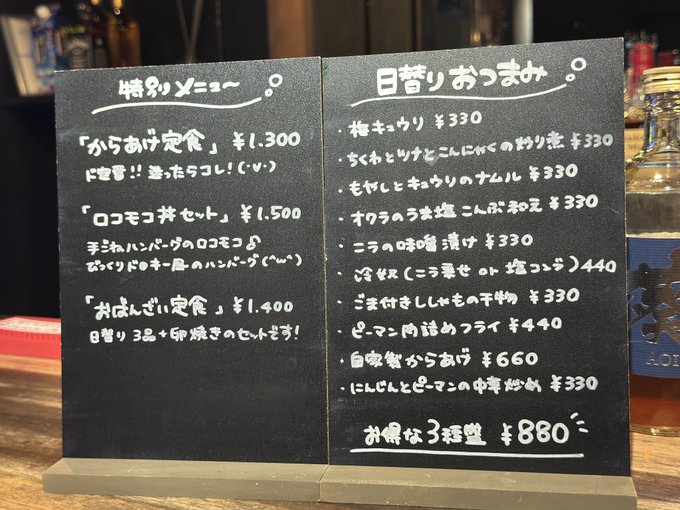 特別メニュ〜
「からあげ定食」 ¥1.300
ド定番!! 迷ったらコレ! (・∀・)
「ロコモコ丼セット」 ¥1.500
手ごねハンバーグのロコモコ♪
びっくりドンキー風のハンバーグ (^ω^)
「おばんざい定食」 ¥1.400
日替り 3品+卵焼きのセットです!
日替り おつまみ
・梅キュウリ ¥330
・ちくわとツナとこんにゃくの炒り煮 ¥330
・もやしとキュウリのナムル ¥330
・オクラのうま塩こんぶ和え ¥330
・ニラの味噌漬け ¥330
・冷奴 (ニラ乗せ or 塩コンブ) 440
・ごま付きししゃもの干物 ¥330
・ピーマン肉詰めフライ ¥440
・自家製からあげ ¥660
・にんじんとピーマンの中華炒め ¥330
お得な3種盛 ¥880
AOI